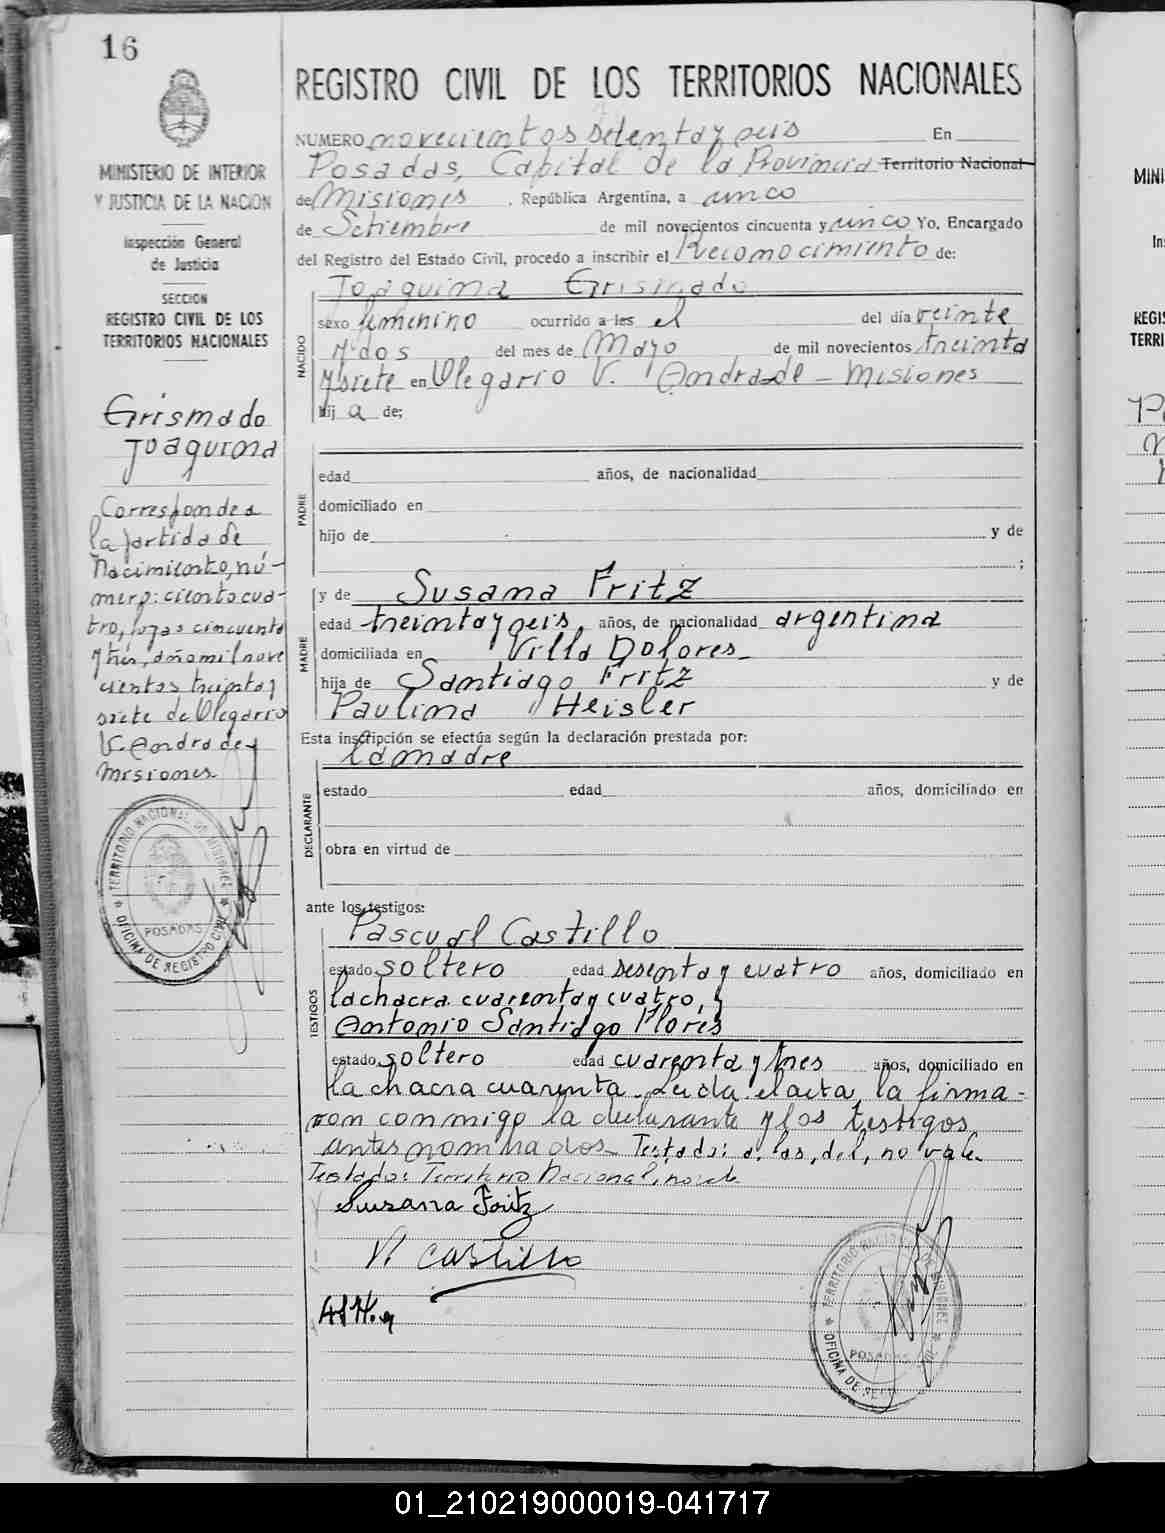 16
MINISTERIO DE INTERIOR
Y JUSTICIA DE LA NACION
Inspección General
de Justicia
SECCION
REGISTRO CIVIL DE LOS
TERRITORIOS NACIONALES
Grismado
Joaquina
Corresponde a
la partida de
Nacimiento, nú-
mero: ciento cua-
tro, fojas cincuenta
y tres, año mil nove
cientos treinta y
siete de Olegario
V. Andrade,
Misiones
TERRITORIO NACIONAL DE MISIONES
POSADAS
OFICINA DE REGISTRO CIVIL
REGISTRO CIVIL DE LOS TERRITORIOS NACIONALES
NUMERO novecientos setenta y seis En
Posadas, Capital de la Provincia Territorio Nacional
de Misiones , República Argentina, a unco
de Setiembre de mil novecientos cincuenta y unco Yo, Encargado
del Registro del Estado Civil, procedo a inscribir el Reconocimiento de:
Joaquina Grismado
sexo femenino ocurrido a las el del día veinte
y dos del mes de Mayo de mil novecientos treinta
y siete en Olegario V. Andrade - Misiones
NACIDO
hij a de;
PADRE
edad años, de nacionalidad
domiciliado en
hijo de y de
;
MADRE
y de Susana Fritz
edad treinta y seis, años, de nacionalidad argentina
domiciliada en Villa Dolores_
hija de Santiago Fritz y de
Paulina Heisler
Esta inscripción se efectúa según la declaración prestada por:
la madre
DECLARANTE
estado edad años, domiciliado en
obra en virtud de
ante los testigos:
TESTIGOS
Pascual Castillo
estado soltero edad sesenta y cuatro años, domiciliado en
la chacra cuarenta y cuatro, y
Antonio Santiago Flores
estado soltero edad cuarenta y tres años, domiciliado en
la chacra cuarenta. Leida el acta, la firma-
ron conmigo la declarante y los testigos
antes nominados_ Testado: a las, del, no vale
Testado: Territorio Nacional, no vale
Susana Fritz
Castillo
TERRITORIO NACIONAL DE MISIONES
POSADAS
MINI
REGIS
TERRI
01_210219000019-041717